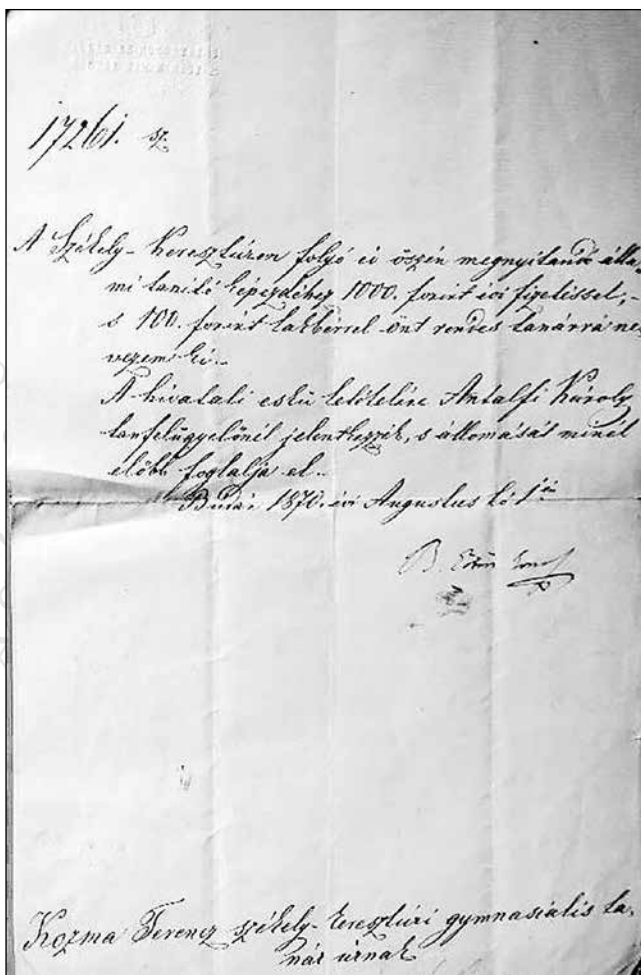 17261. sz.
A Székely-Keresztúron folyó évi őszén megnyitandó álla-
mi tanító képezdéhez 1000. forint évi fizetéssel,
s 100. forint lakbérrel önt rendes tanárrá ne-
vezem ki.
A hivatali eskü letételire Antalfi Károly
tanfelügyelőnél jelentkezzék, s állomását minél
előbb foglalja el.
Budán 1870. évi Augustus hó 1én
B. Eötvös
Kozma Ferencz székely-keresztúri gymnasialis ta-
nár úrnak